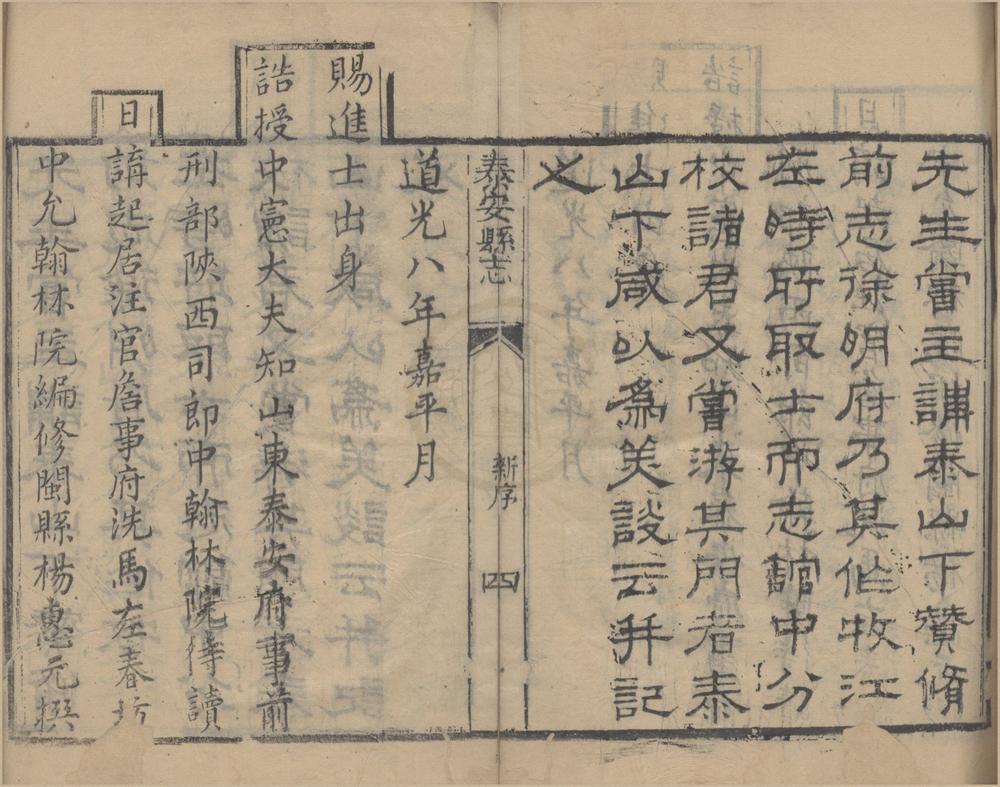 先生嘗主講泰山下贊脩
前志徐明府乃其作牧江
左時所取士而志館中分
校諸君又嘗游其門者泰
山下咸以為美談云并記
之
泰安縣志
新序
四
道光八年嘉平月
賜進士出身
誥授中憲大夫知山東泰安府事前
刑部陝西司郎中翰林院侍讀
日講起居注官詹事府洗馬左春坊
中允翰林院編修閩縣楊惠元撰